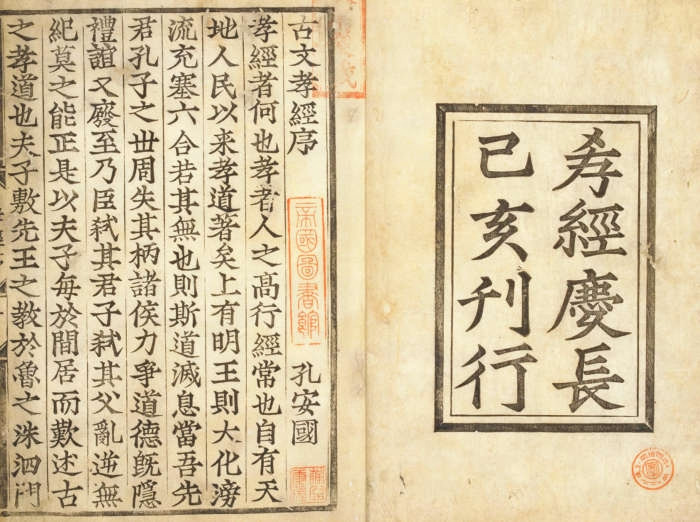 孝經慶長
己亥刊行
古文孝經序 孔安國
帝國圖書館
孝經者何也孝者人之髙行經常也自有天
地人民以来孝道著矣上有明王則大化滂
流充塞六合若其無也則斯道滅息當吾先
君孔子之世周失其柄諸侯力爭道德既隱
禮誼又廢至乃臣弑其君子弑其父亂逆無
紀莫之能正是以夫子每於間居而歎述古
之孝道也夫子敷先王之教於魯之洙泗門